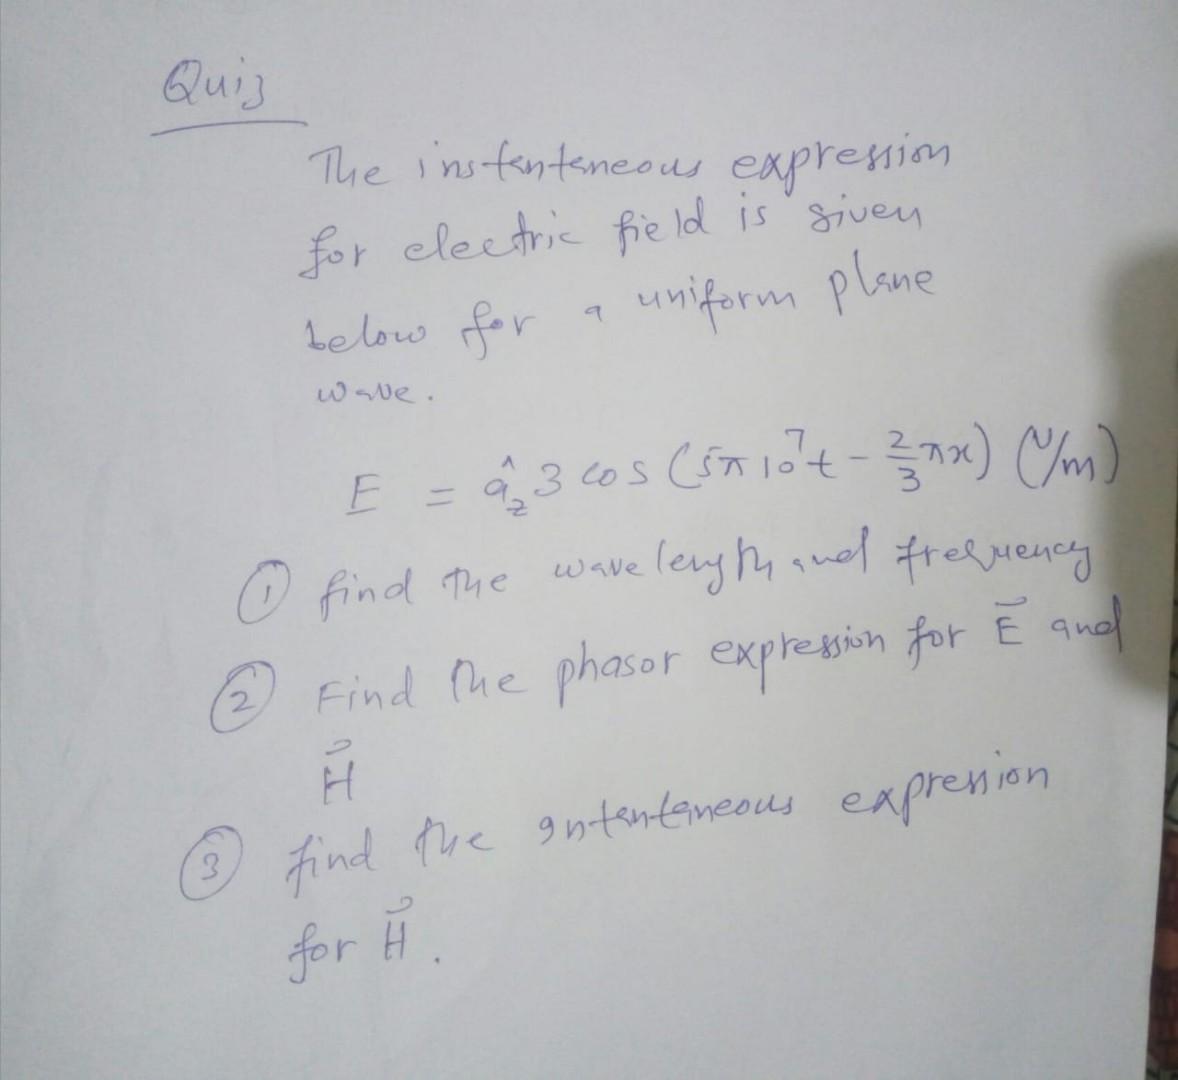 Quiz
The instenteneous expression
for electric field is given
below for a uniform plane
wave.
E = â_z 3 cos (5π10⁷t - 2/3 πx) (V/m)
① find the wavelength and frequency
② Find the phasor expression for E⃗ and
H⃗
③ find the intenteneous expression
for H⃗.